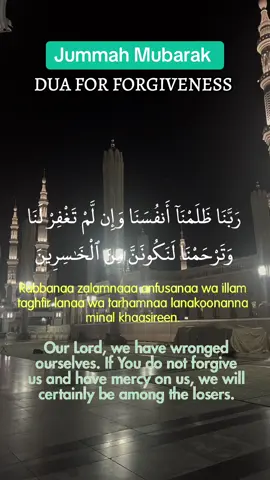 Jummah Mubarak
DUA FOR FORGIVENESS
رَبَّنَا ظَلَمْنَآ أَنفُسَنَا وَإِن لَّمْ تَغْفِرْ لَنَا
وَتَرْحَمْنَا لَنَكُونَنَّ مِنَ ٱلْخَـٰسِرِينَ
Rabbanaa zalamnaaa anfusanaa wa illam
taghfir lanaa wa tarhamnaa lanakoonanna
minal khaasireen.
Our Lord, we have wronged
ourselves. If You do not forgive
us and have mercy on us, we will
certainly be among the losers.